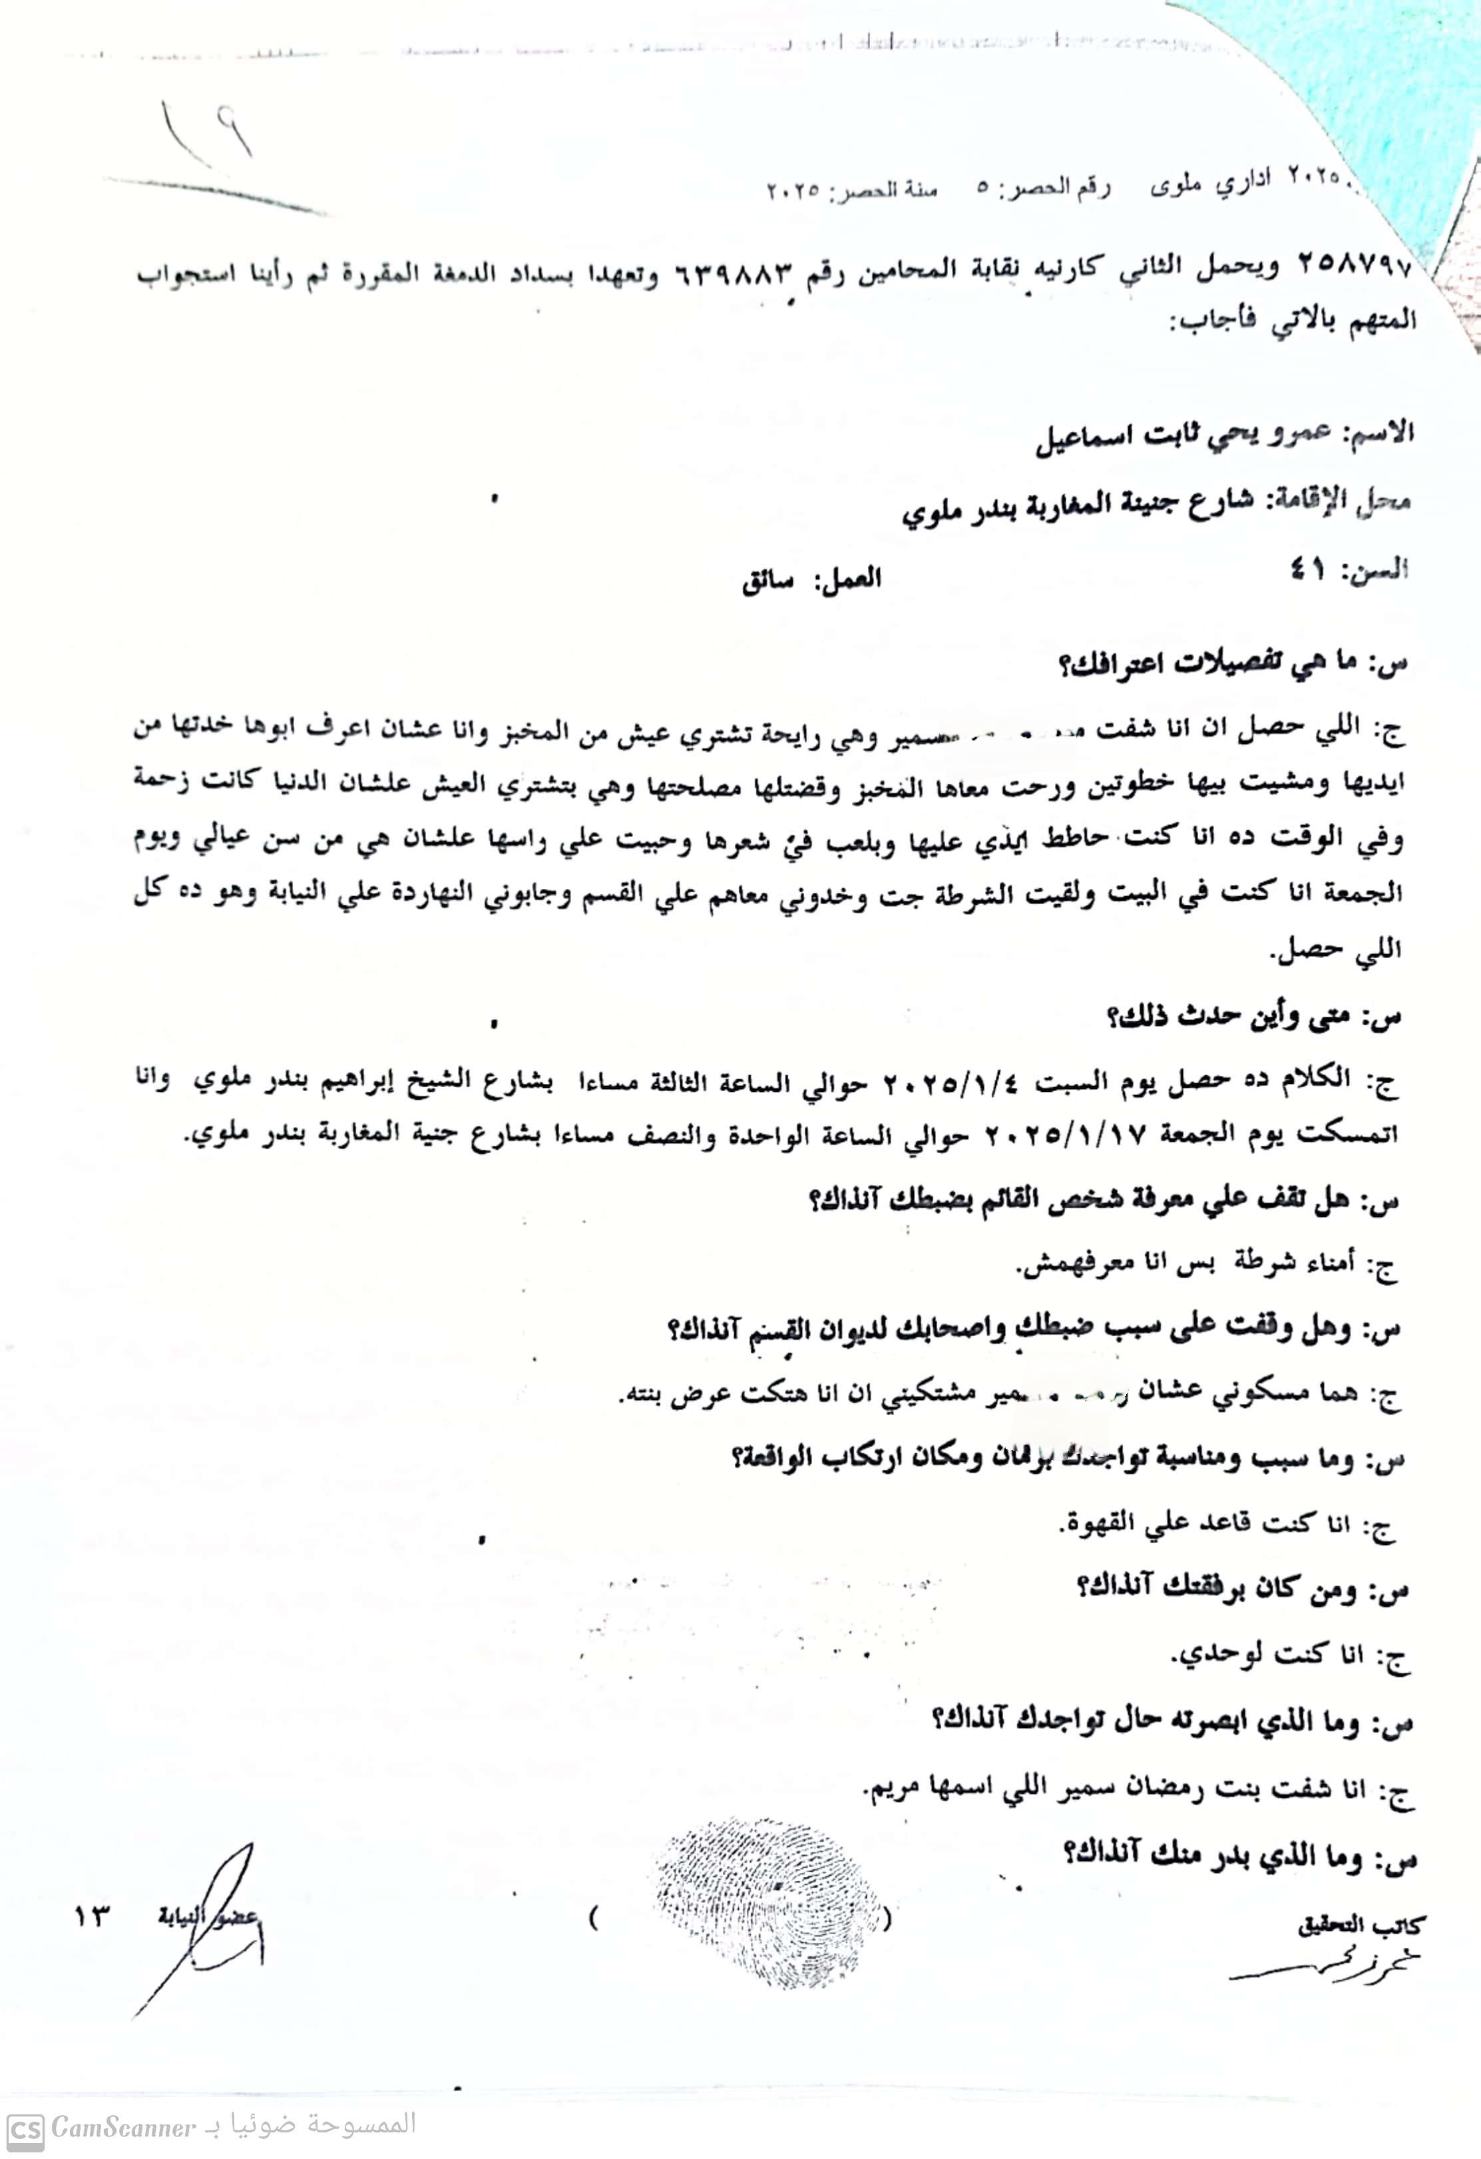 ١٩
٢٠٢٥ اداري ملوى رقم الحصر: ٥ سنة الحصر: ٢٠٢٥
٢٥٨٧٩٧ ويحمل الثاني كارنيه نقابة المحامين رقم ٦٣٩٨٨٣ وتعهدا بسداد الدمغة المقررة ثم رأينا استجواب
المتهم بالاتي فأجاب:
الاسم: عمرو يحي ثابت اسماعيل
محل الإقامة: شارع جنينة المغاربة بندر ملوي
السن: ٤١ العمل: سائق
س: ما هي تفصيلات اعترافك؟
ج: اللي حصل ان انا شفت سمير وهي رايحة تشتري عيش من المخبز وانا عشان اعرف ابوها خدتها من
ايديها ومشيت بيها خطوتين ورحت معاها المخبز وقضتلها مصلحتها وهي بتشتري العيش علشان الدنيا كانت زحمة
وفي الوقت ده انا كنت حاطط ايدي عليها وبلعب في شعرها وحبيت علي راسها علشان هي من سن عيالي ويوم
الجمعة انا كنت في البيت ولقيت الشرطة جت وخدوني معاهم علي القسم وجابوني النهاردة علي النيابة وهو ده كل
اللي حصل.
س: متى وأين حدث ذلك؟
ج: الكلام ده حصل يوم السبت ٢٠٢٥/١/٤ حوالي الساعة الثالثة مساءا بشارع الشيخ إبراهيم بندر ملوي وانا
اتمسكت يوم الجمعة ٢٠٢٥/١/١٧ حوالي الساعة الواحدة والنصف مساءا بشارع جنية المغاربة بندر ملوي.
س: هل تقف علي معرفة شخص القائم بضبطك آنذاك؟
ج: أمناء شرطة بس انا معرفهمش.
س: وهل وقفت على سبب ضبطك واصحابك لديوان القسم آنذاك؟
ج: هما مسكوني عشان سمير مشتكيني ان انا هتكت عرض بنته.
س: وما سبب ومناسبة تواجدك بزمان ومكان ارتكاب الواقعة؟
ج: انا كنت قاعد علي القهوة.
س: ومن كان برفقتك آنذاك؟
ج: انا كنت لوحدي.
س: وما الذي ابصرته حال تواجدك آنذاك؟
ج: انا شفت بنت رمضان سمير اللي اسمها مريم.
س: وما الذي بدر منك آنذاك؟
كاتب التحقيق ( ) عضو النيابة ١٣
الممسوحة ضوئيا بـ CamScanner
CS